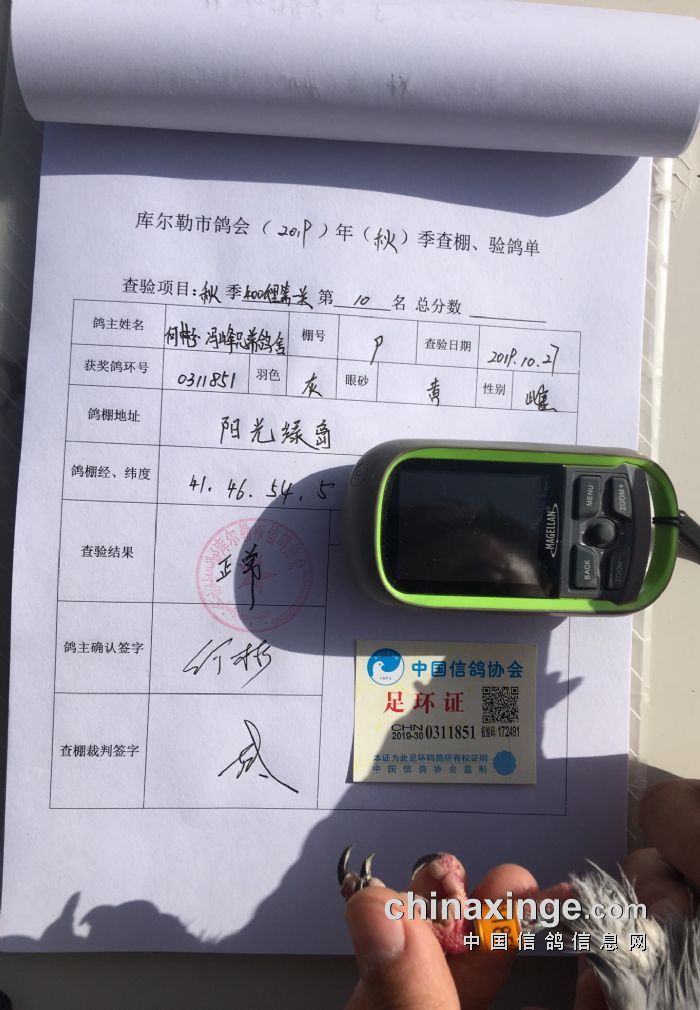 库尔勒市鸽会（2019）年（秋）季查棚、验鸽单
查验项目：秋季 400 第 10 名 总分数
鸽主姓名 冯峰兄弟鸽舍 棚号 9 查验日期 2019.10.27
获奖鸽环号 0311851 羽色 灰 眼砂 黄 性别 雌
鸽棚地址 阳光绿岛
鸽棚经、纬度 41.46.54.5
查验结果 正常
鸽主确认签字
查棚裁判签字
MAGELLAN
MENU
ZOOM+
BACK
ZOOM-
中国信鸽协会
足环证
CHN
2019-30 0311851 172491
本证为此足环码鸽所有权证明
中国信鸽协会监制
chinaxinge.com
中国信鸽信息网